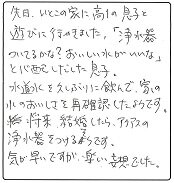 先日、いとこの家に高1の息子と
遊びに行かせました。「浄水器
ついてるかな?おいしい水がいいな」
と心配しだした息子。
水道水を久しぶりに飲んで、家の
水のおいしさを再確認したようです。
将来、結婚したら、アクアスの
浄水器をつけるそうです。
気が早いですが、楽しい妄想でした。